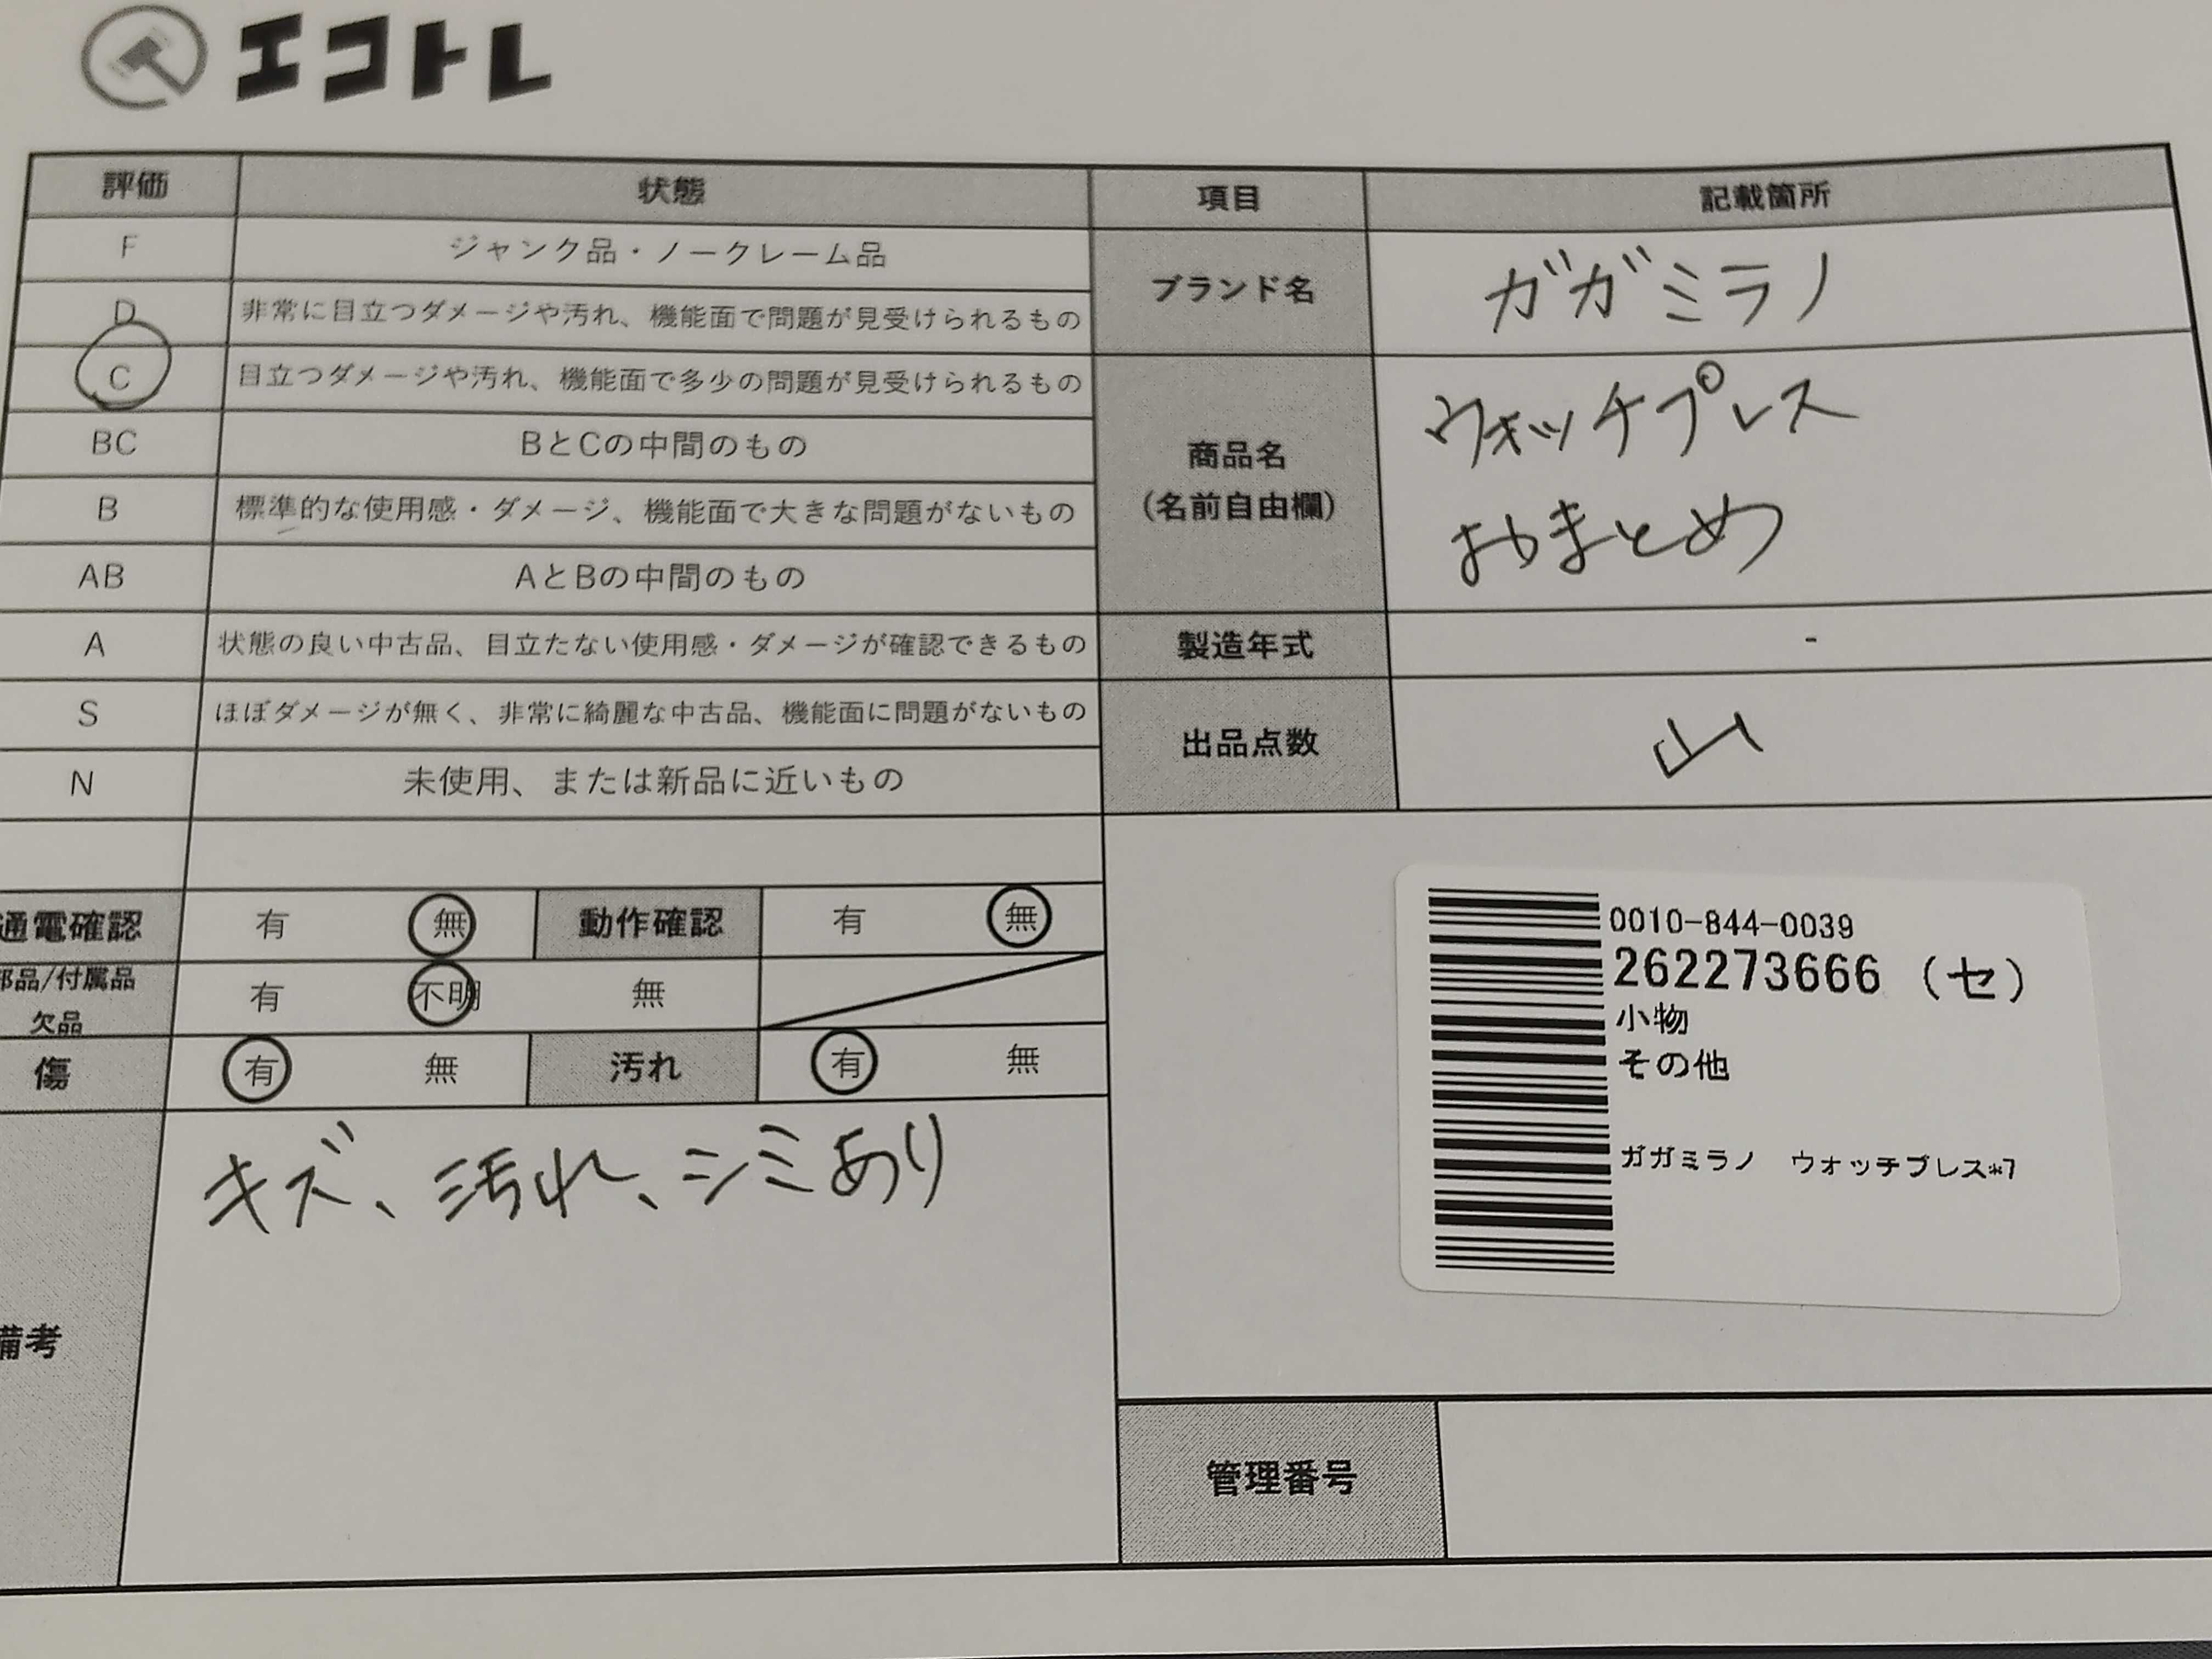 エコトレ
評価 状態 項目 記載箇所
F ジャンク品・ノークレーム品
D 非常に目立つダメージや汚れ、機能面で問題が見受けられるもの
C 目立つダメージや汚れ、機能面で多少の問題が見受けられるもの
BC BとCの中間のもの
B 標準的な使用感・ダメージ、機能面で大きな問題がないもの
AB AとBの中間のもの
A 状態の良い中古品、目立たない使用感・ダメージが確認できるもの
S ほぼダメージが無く、非常に綺麗な中古品、機能面に問題がないもの
N 未使用、または新品に近いもの
ブランド名 ガガミラノ
商品名
(名前自由欄)
ウォッチプレス
おまとめ
製造年式 -
出品点数 山
通電確認 有 無 動作確認 有 無
部品/付属品
欠品
有 不明 無
傷 有 無 汚れ 有 無
備考
キズ、汚れ、シミあり
0010-844-0039
262273666 (セ)
小物
その他
ガガミラノ ウォッチブレス*7
管理番号